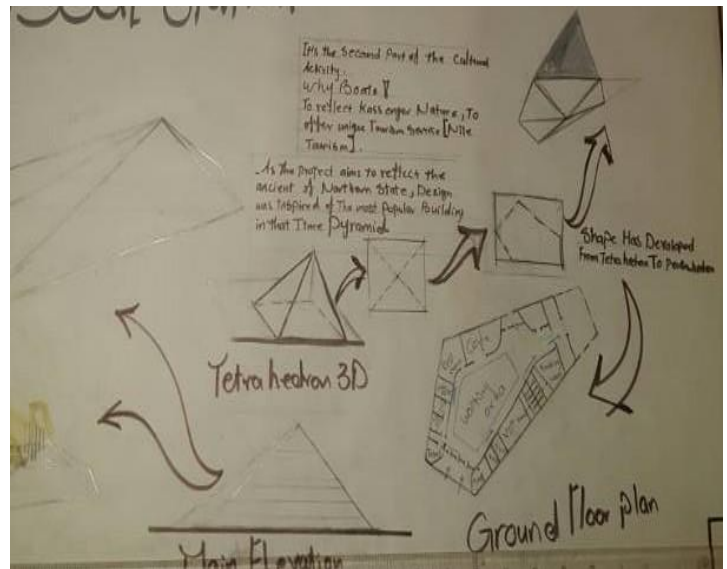 Boat Station
It's the Second Part of the Cultural
Activity.
Why Boats
To reflect Kassenger Nature, To
offer unique Tourism Service [Nile
Tourism].
As the Project aims to reflect the
ancient of Northern State, Design
was Inspired of The most Popular Building
in that Time Pyramid
Shape Has Developed
From Tetrahedron To
Tetrahedron 3D
Cafe
working
area
Ground Floor plan
Main Elevation